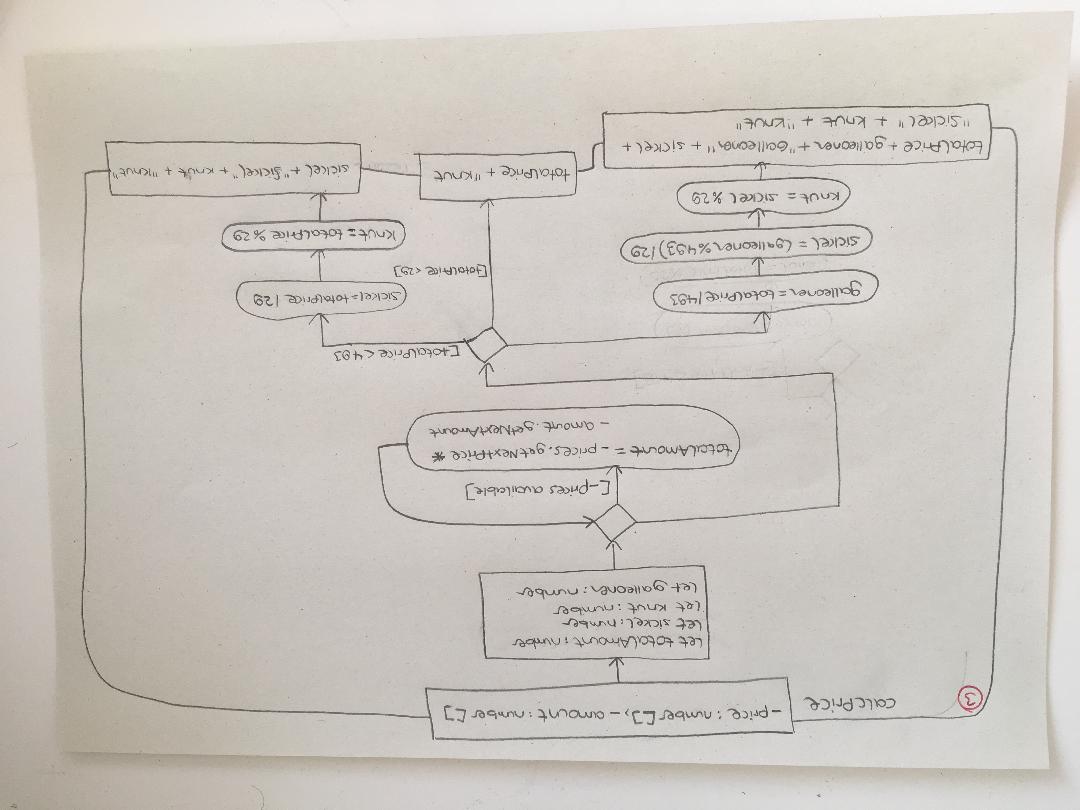 3
calcPrice
_price : number [ ], _ amount : number [ ]
Let totalAmount : number
Let sickel : number
Let knut : number
Let galleoner : number
[_prices available]
totalAmount = _prices.getNextPrice *
_ amount.getNextAmount
[totalPrice < 493
galleoner = totalPrice / 493
sickel = (galleoner % 493) / 29
knut = sickel % 29
[totalPrice < 29]
sickel = totalprice / 29
knut = totalPrice % 29
totalPrice + galleoner + "Galleoner" + sickel +
"Sickel" + knut + "Knut"
totalPrice + "Knut
sickel + "Sickel" + knut + "Knut"